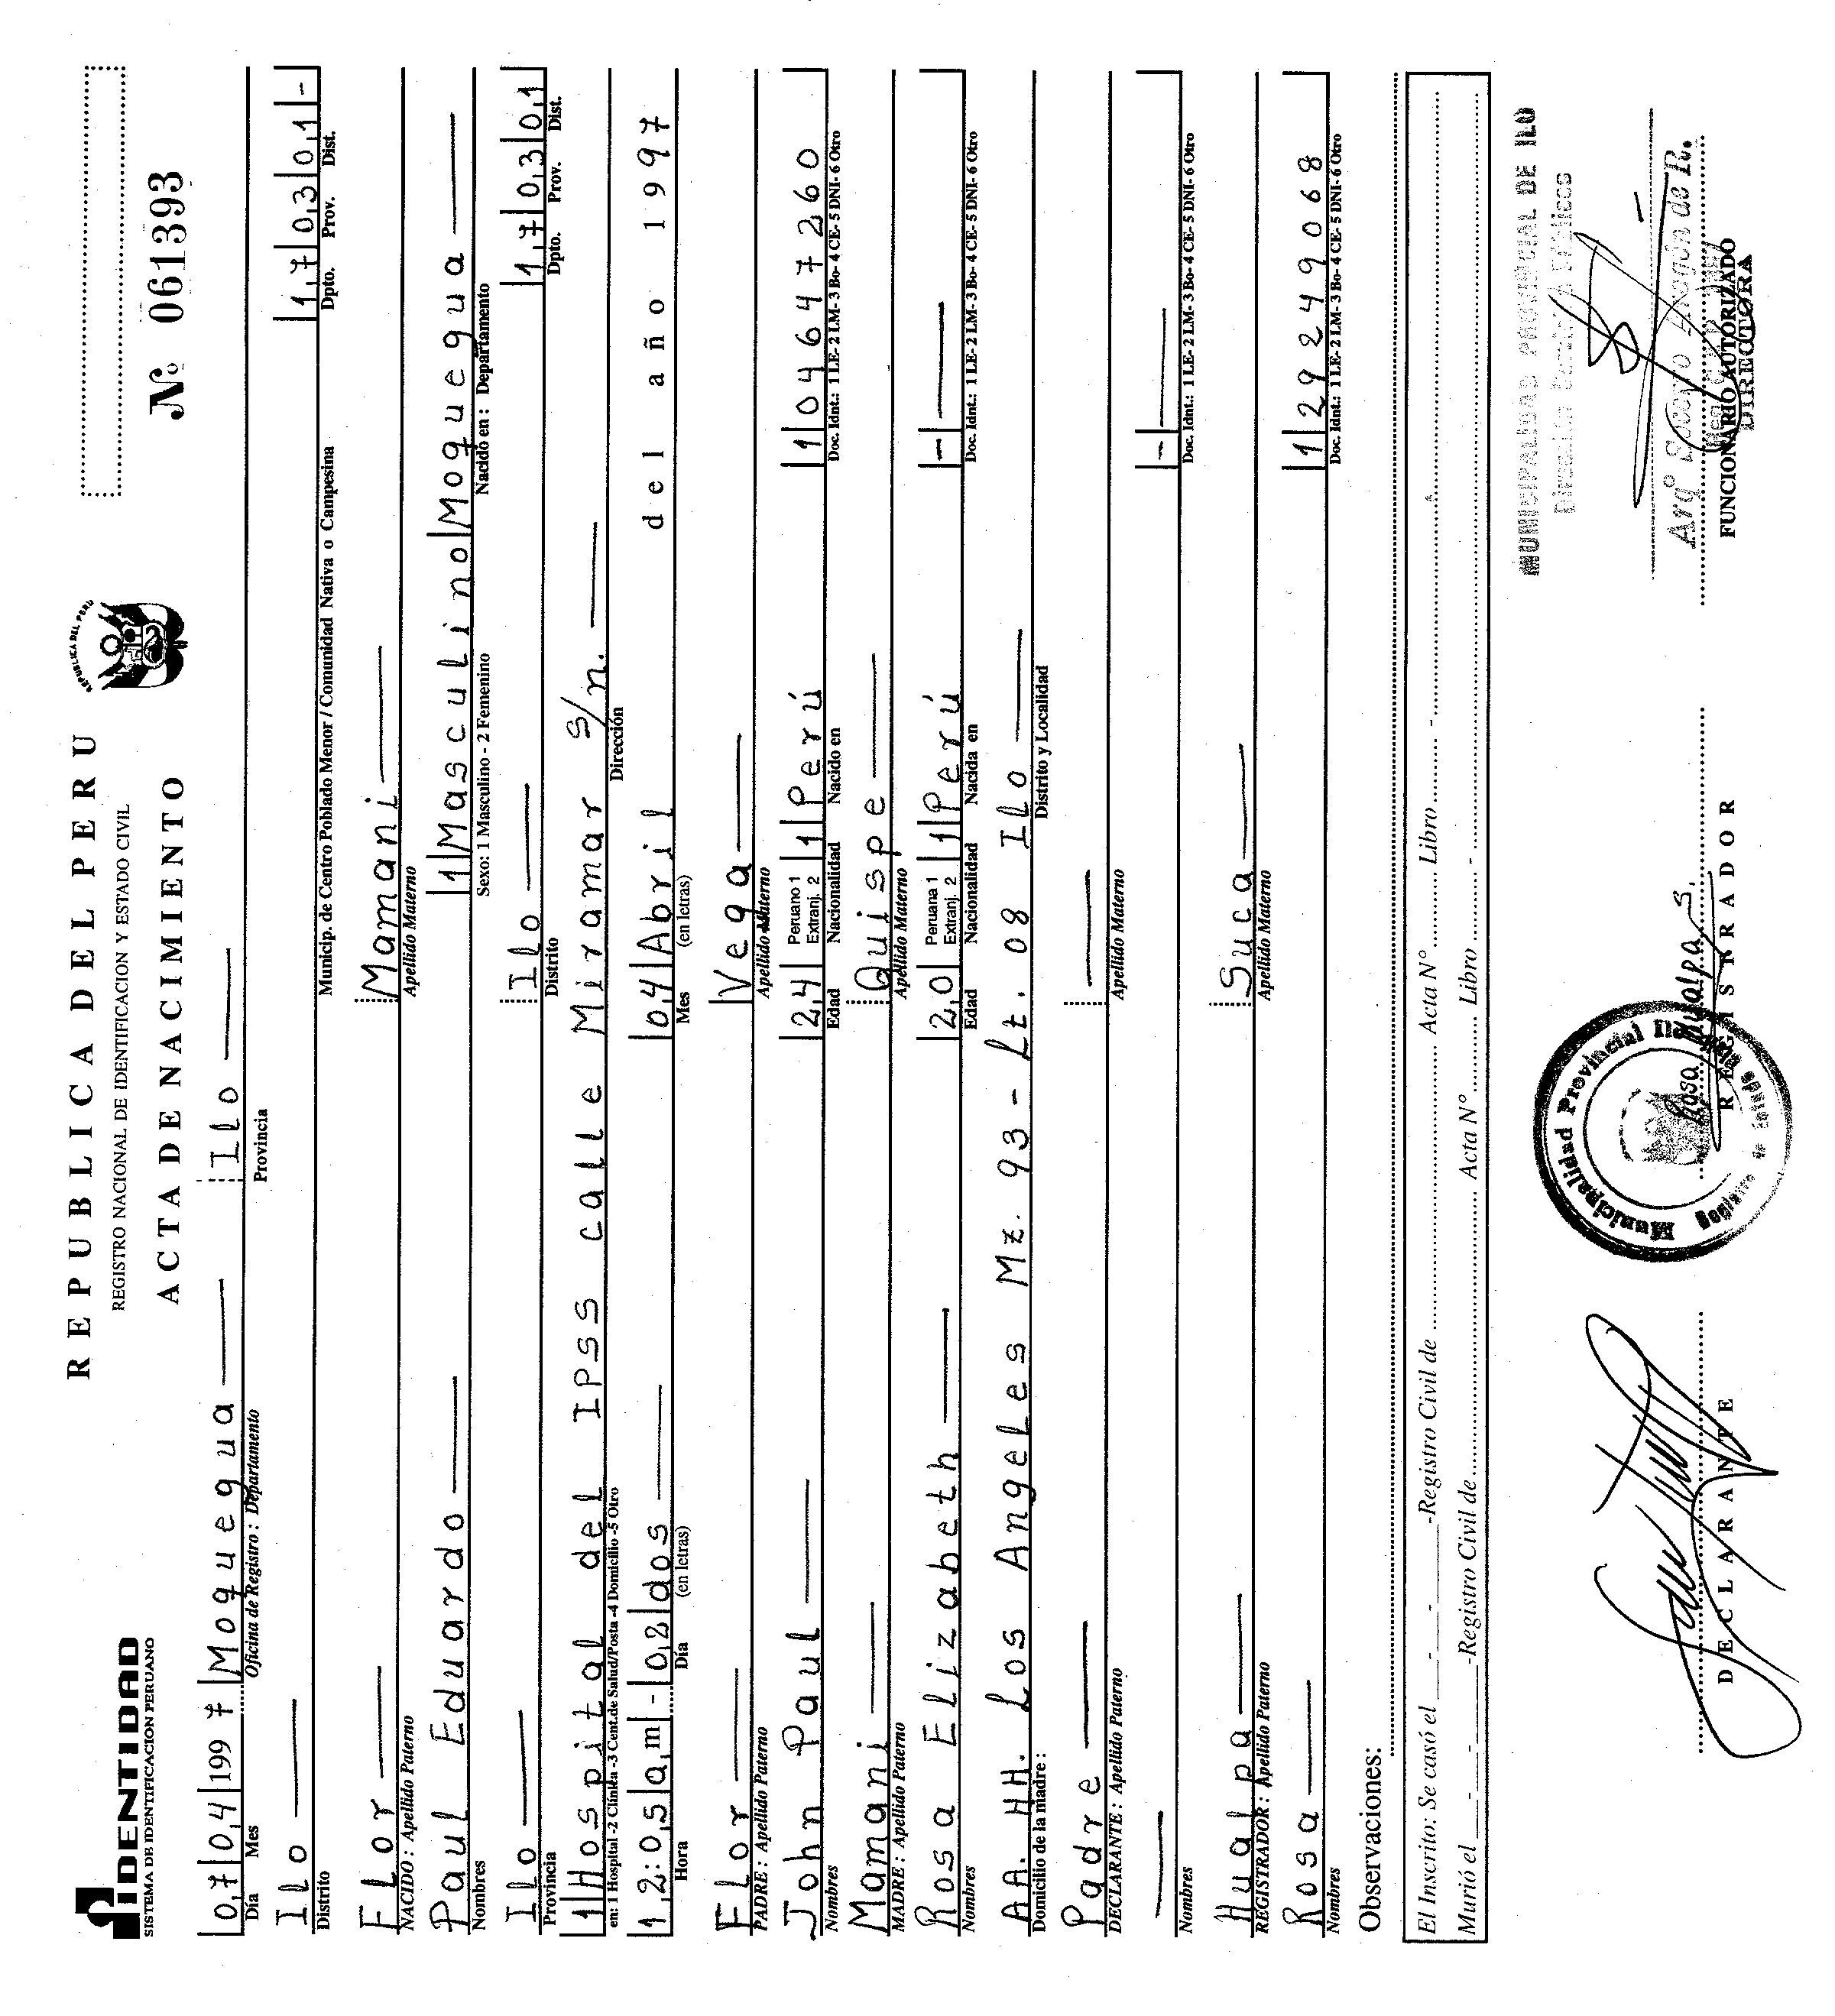 IDENTIDAD
SISTEMA DE IDENTIFICACION PERUANO
REPUBLICA DEL PERU
REPUBLICA DEL PERU
REGISTRO NACIONAL DE IDENTIFICACION Y ESTADO CIVIL
ACTA DE NACIMIENTO
Nº 061393
0,7 0,4 199 7 Moquegua Ilo
Día Mes Oficina de Registro : Departamento Provincia
Ilo 1,7 0,3 0,1 -
Distrito Municip. de Centro Poblado Menor / Comunidad Nativa o Campesina Dpto. Prov. Dist.
Flor Mamani
NACIDO : Apellido Paterno Apellido Materno
Paul Eduardo 1 Masculino Moquegua
Nombres Sexo: 1 Masculino - 2 Femenino Nacido en : Departamento
Ilo Ilo 1,7 0,3 0,1
Provincia Distrito Dpto. Prov. Dist.
1 Hospital del IPSS calle Miramar s/n.
en: 1 Hospital -2 Clínica -3 Cent.de Salud/Posta -4 Domicilio -5 Otro Dirección
1,2:0,5 a,m - 0,2 dos 0,4 Abril del año 1997
Hora Día (en letras) Mes (en letras)
Flor Vega
PADRE : Apellido Paterno Apellido Materno
John Paul 2,4 Peruano 1 Extranj. 2 1 Perú 1 04647260
Nombres Edad Nacionalidad Nacido en Doc. Idnt.: 1 LE- 2 LM- 3 Bo- 4 CE- 5 DNI- 6 Otro
Mamani Quispe
MADRE : Apellido Paterno Apellido Materno
Rosa Elizabeth 2,0 Peruana 1 Extranj. 2 1 Perú -
Nombres Edad Nacionalidad Nacida en Doc. Idnt.: 1 LE- 2 LM- 3 Bo- 4 CE- 5 DNI- 6 Otro
AA. HH. Los Angeles Mz. 93 - Lt. 08 Ilo
Domicilio de la madre : Distrito y Localidad
Padre
DECLARANTE : Apellido Paterno Apellido Materno
-
Nombres Doc. Idnt.: 1 LE- 2 LM- 3 Bo- 4 CE- 5 DNI- 6 Otro
Hualpa Suca
REGISTRADOR : Apellido Paterno Apellido Materno
Rosa 1 29249068
Nombres Doc. Idnt.: 1 LE- 2 LM- 3 Bo- 4 CE- 5 DNI- 6 Otro
Observaciones:
El Inscrito: Se casó el - - -Registro Civil de Acta Nº Libro -
Murió el - - -Registro Civil de Acta Nº Libro -
MUNICIPALIDAD PROVINCIAL DE ILO
Municipalidad Provincial Ilo
Rosa Hualpa S.
Arqº Socorro Aragón de R.
DECLARANTE
REGISTRADOR
FUNCIONARIO AUTORIZADO
DIRECTORA